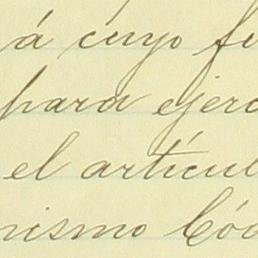 á cuyo fi
para ejerc
el artícul
mismo Cód